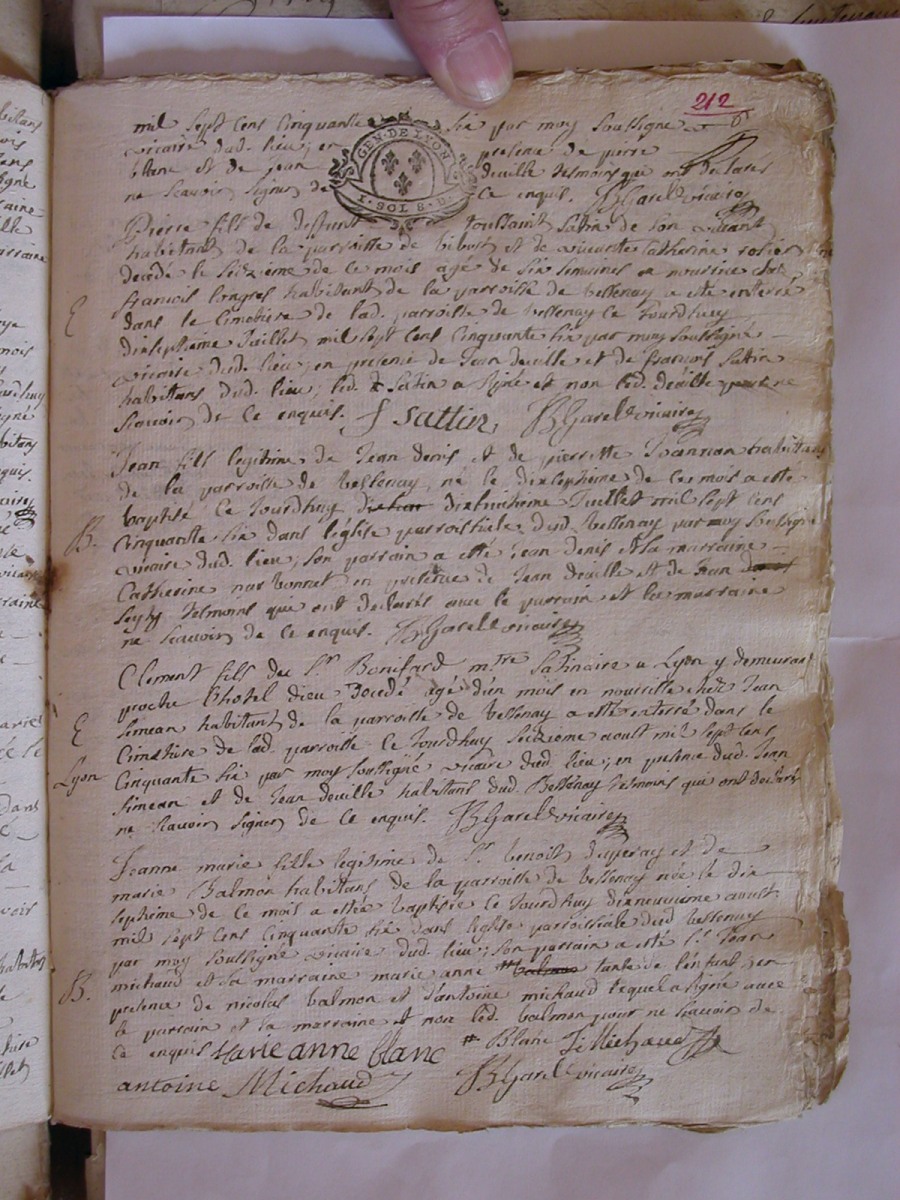 212
mil sept cens cinquante six par moy soussigné
vicaire dud. lieu; en presence de pierre
blanc et de jean deville tesmoins que ont declarés
ne scavoir signer de ce enquis. BGarel vicaire
GEN. DE LYON
1. SOL 8. D.
Pierre fils de deffunt toussaint satin de son vivant
habitant de la parroisse de bibost et de vivante Catherine
decedé le seizieme de ce mois agé de six semaines en nourrice chez
francois longres habitant de la parroisse de bessenay a esté enterré
E
dans le cimetiere de lad. parroisse de bessenay ce Jourdhuy
dixseptieme Juillet mil sept cens cinquante six par moy soussigné
vicaire dud. lieu; en presence de Jean deville et de francois sattin
habitans dud. lieu; led. satin a signé et non led. deville pour ne
scavoir de ce enquis. f sattin, BGarel vicaire
Jean fils legitime de Jean denis et de pierrette Joannon habittans
de la parroisse de bessenay, né le dixseptieme de ces mois a esté
baptisé ce Jourdhuy dixhuitieme Juillet mil sept cens
B.
cinquante six dans léglise parroissiale dud. bessenay par moy soussigné
vicaire dud. lieu; son parrain a esté jean denis et la marraine
Catherine narbonnet en presence de Jean deville et de Jean
tesmoins que ont declarés avec le parrain et la marraine
ne scavoir de ce enquis. BGarel vicaire
Clement fils du Sr. Bonifard mtre satinaire a Lyon y demeurant
proche lhotel dieu decedé agé d'un mois en nourrisse chez Jean
E
simean habittant de la parroisse de bessenay a esté enterré dans le
cimetiere de lad. parroisse ce Jourdhuy seizieme aoust mil sept cens
Lyon
cinquante six par moy soussigné vicaire dud. lieu; en presence dud. Jean
simean et de Jean deville habittans dud. Bessenay tesmoins qui ont declarés
ne scavoir signer de ce enquis. BGarel vicaire
Jeanne marie fille legitime de Sr. benoist duperay et de
marie Balmon habitans de la parroisse de bessenay née le dix
septieme de ce mois a estée baptisée ce Jourdhuy dixneuvieme aoust
mil sept cens cinquante six dans léglise parroissiale dud. bessenay
par moy soussigné vicaire dud. lieu; son parrain a esté Sr. Jean
B.
michaud et sa marraine marie anne tante de l'enfant; en
presence de nicolas balmon et d'antoine michaud lequel a signé avec
le parrain et la marraine et non led. balmon pour ne scavoir de
ce enquis marie anne blanc # Blanc J Michaud
antoine Michaud BGarel vicaire